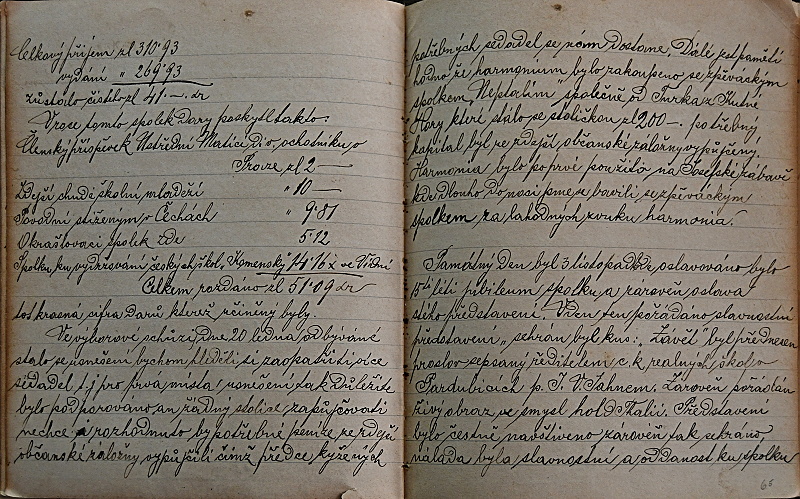 Celkový příjem zl 310·93
vydání " 269·93
zůstalo čistého zl 41·— kr
V roce tomto spolek dary poskytl takto:
Členský příspěvek Ústřední Matici div. ochotníků v
Praze zl 2 —
Zdejší chudé školní mládeži " 10 —
Povodní stíženým v Čechách " 9·81
Okrašlovací spolek zde 5·12
Spolku ku vydržování českých škol „Komenský" 14·16 x ve Vídni
Celkem rozdáno zl 51·09 kr
toť krásná cifra darů kteréž učiněny byly.
Ve výborové schůzi dne 20 ledna odbývané
stalo se usnešení bychom hleděli si zaopatřiti více
sedadel t.j. pro prvá místa, usnešení tak důležité
bylo podporováno an žádný stolice zapůjčovati
nechce, i rozhodnuto by potřebné peníze ze zdejší
občanské záložny vypůjčili čímž předce kýžených
potřebných sedadel se nám dostane. Dálé jest paměti
hodno že harmonium bylo zakoupeno se zpěváckým
spolkem „Neptalim" společně od Turka z Kutné
Hory které stálo se stoličkou zl 200 —. potřebný
kapitál byl ze zdejší občanské záložny vypůjčený.
Harmonia bylo po prvé použito na Josefské zábavě
kde dlouho do noci jsme se bavili se zpěváckým
spolkem za lahodných zvuků harmonia.
Památný den byl 3 listopadu oslavováno bylo
15ti letí jubileum spolku a zároveň oslava
stého představení. V den ten pořádáno slavnostní
představení, sehrán byl kus: „Závěť" byl přednesen
proslov sepsaný ředitelem c. k. reálných škol v
Pardubicích p. J. V.
Zároveň pořádán
živý obraz ve smysl hold Thalii. Představení
bylo četně navštíveno zároveň tak sehráno,
nálada byla slavnostní a oddanost ku spolku
65